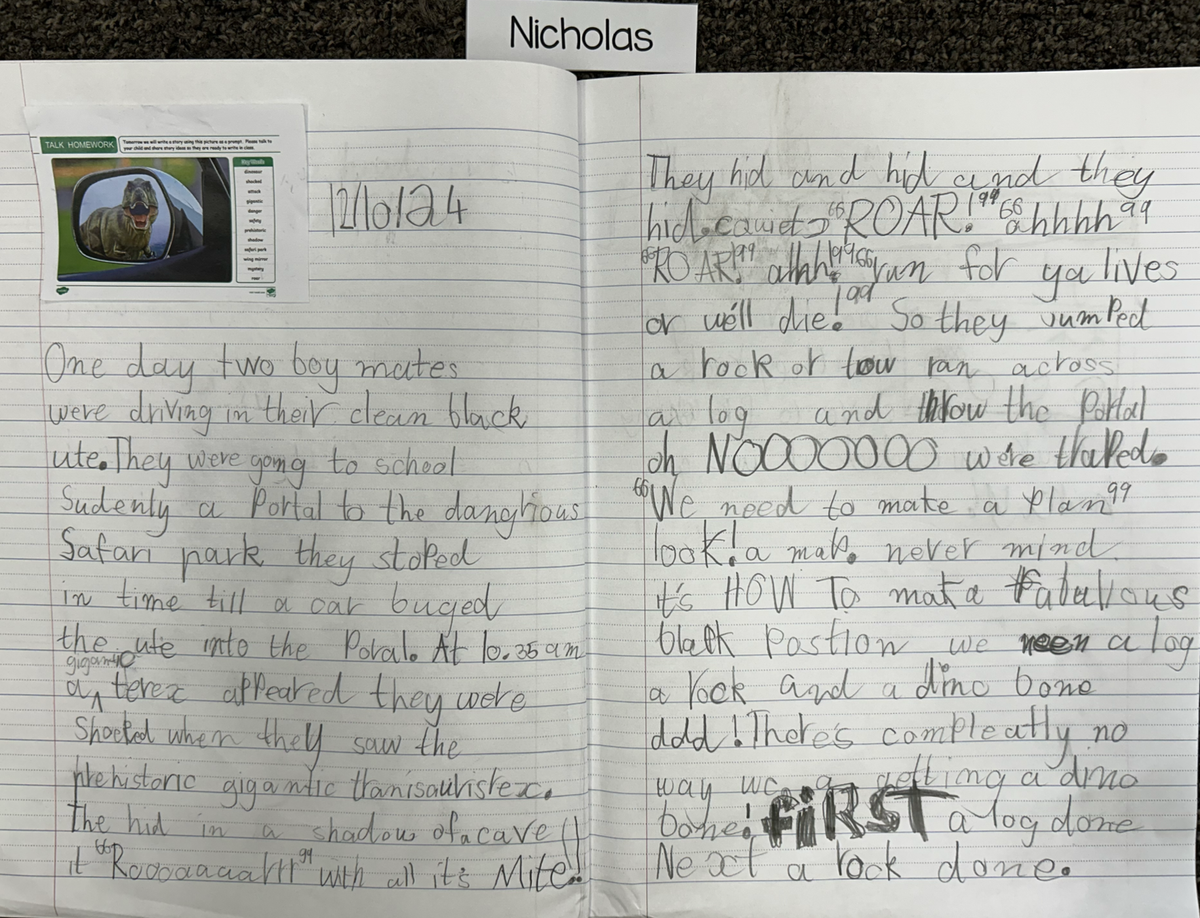 Nicholas
TALK HOMEWORK
Tomorrow we will write a story using this picture as a prompt. Please talk to
your child and share story ideas so they are ready to write in class.
Key Words
dinosaur
shocked
attack
gigantic
danger
safety
prehistoric
shadow
safari park
wing mirror
mystery
roar
12/10/24
One day two boy mates
were driving in their clean black
ute. They were going to school
Sudenly a Portal to the dangrious
Safari park they stoped
in time till a car buged
the ute into the Poral. At 10.35 am
gigantic
a ^ terex appeared they were
Shocked when they saw the
prehistoric gigantic tranisauristex.
The hid in a shadow of a cave!!
it "Roooaaaarrr" with all it's Mite!!
They hid and hid and they
hid. cquiet "ROAR!" "ahhhh"
"ROAR!" ahhh!" "run for ya lives
or we'll die!" So they jumped
a rock or tow ran across
a log and throw the Portal
oh NOOOOOOOO were traped.
"We need to make a plan"
look! a map. never mind
it's HOW To make a Fabulous
black Postion we neen a log
a rock and a dino bone
ddd! There's compleatly no
way we getting a dino
bone! FiRST a log done
Next a rock done.